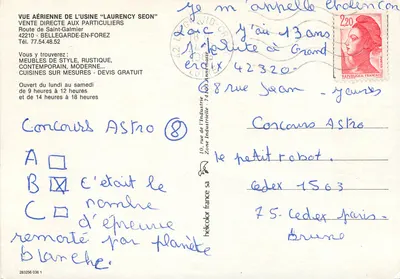 VUE AÉRIENNE DE L'USINE "LAURENCY SEON"
VENTE DIRECTE AUX PARTICULIERS
Route de Saint-Galmier
42210 - BELLEGARDE-EN-FOREZ
Tél. 77.54.48.52
Vous y trouverez :
MEUBLES DE STYLE, RUSTIQUE,
CONTEMPORAIN, MODERNE...
CUISINES SUR MESURES - DEVIS GRATUIT
Ouvert du lundi au samedi
de 9 heures à 12 heures
et de 14 heures à 18 heures
Concours ASTRO 8
A
B C'était le
C nombre
d'épreuve
remorté par planète
blanche.
093256 036 1
10, rue de l'Industrie
Zone Industrielle
helicolor france sa
Je m'appelle
Loïc J'ai 13 ans
J'habite à Grand
croix 42320
8 rue Jean - Jaurès
2,20
Concours ASTRO
le petit robot.
Cedex 1503
75. Cedex paris-
Brune